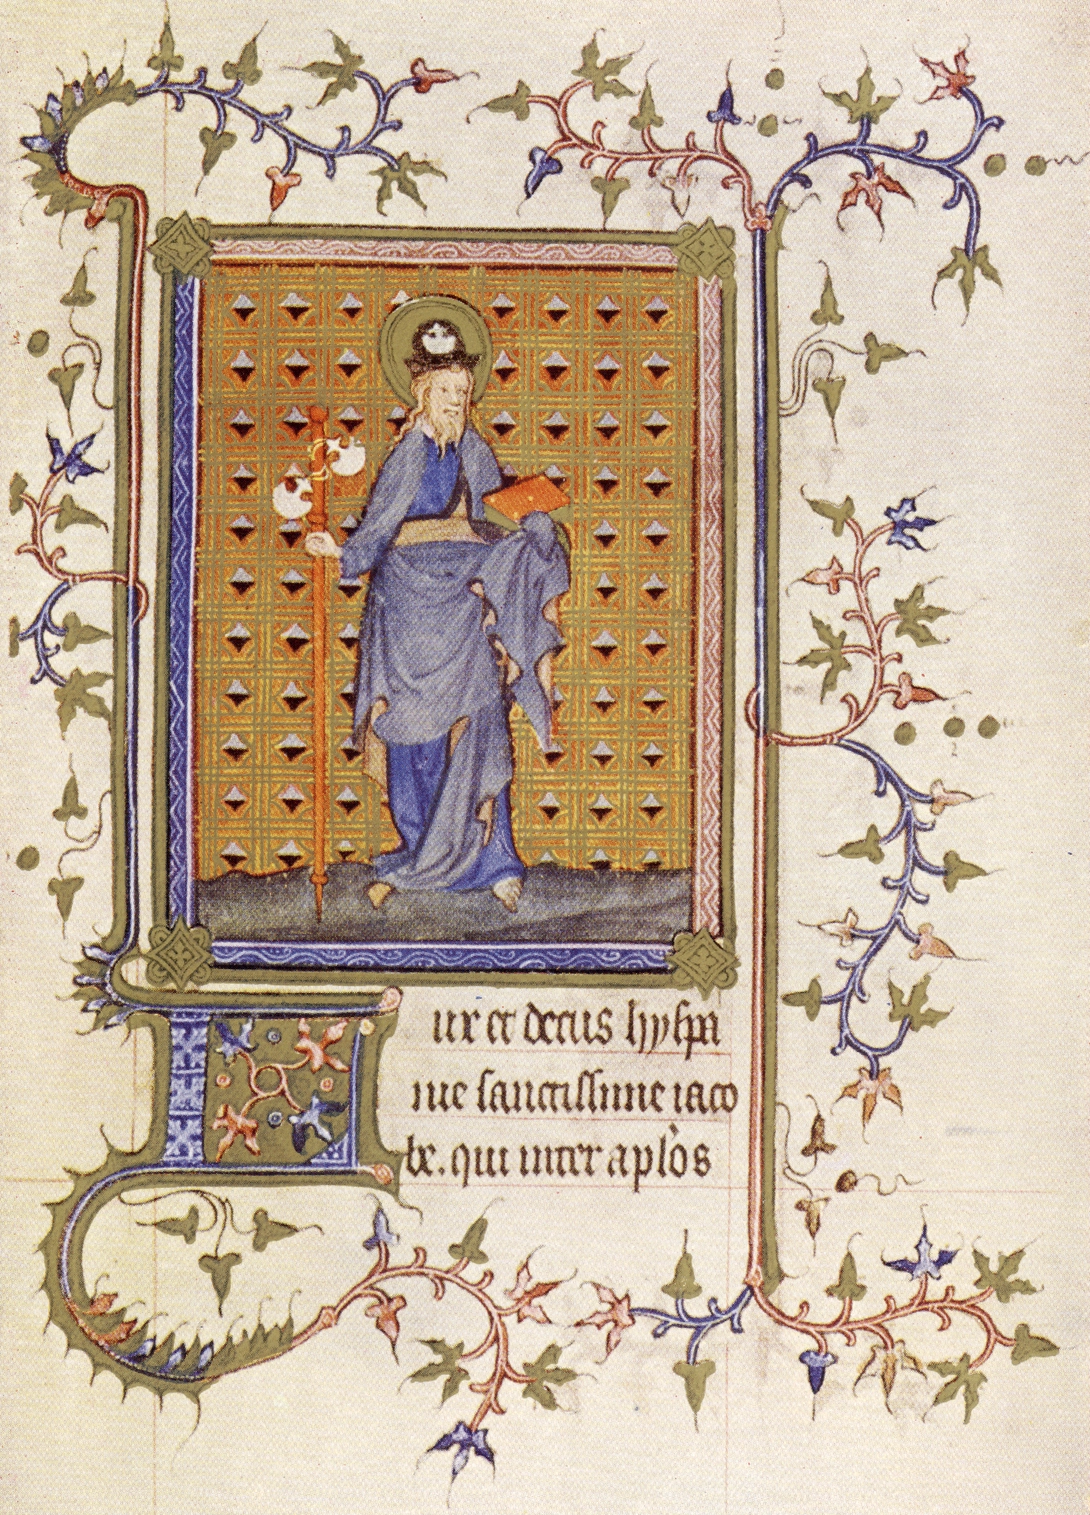 Lux et decus hyspa
nie sanctissime iaco
be. qui inter apl'os